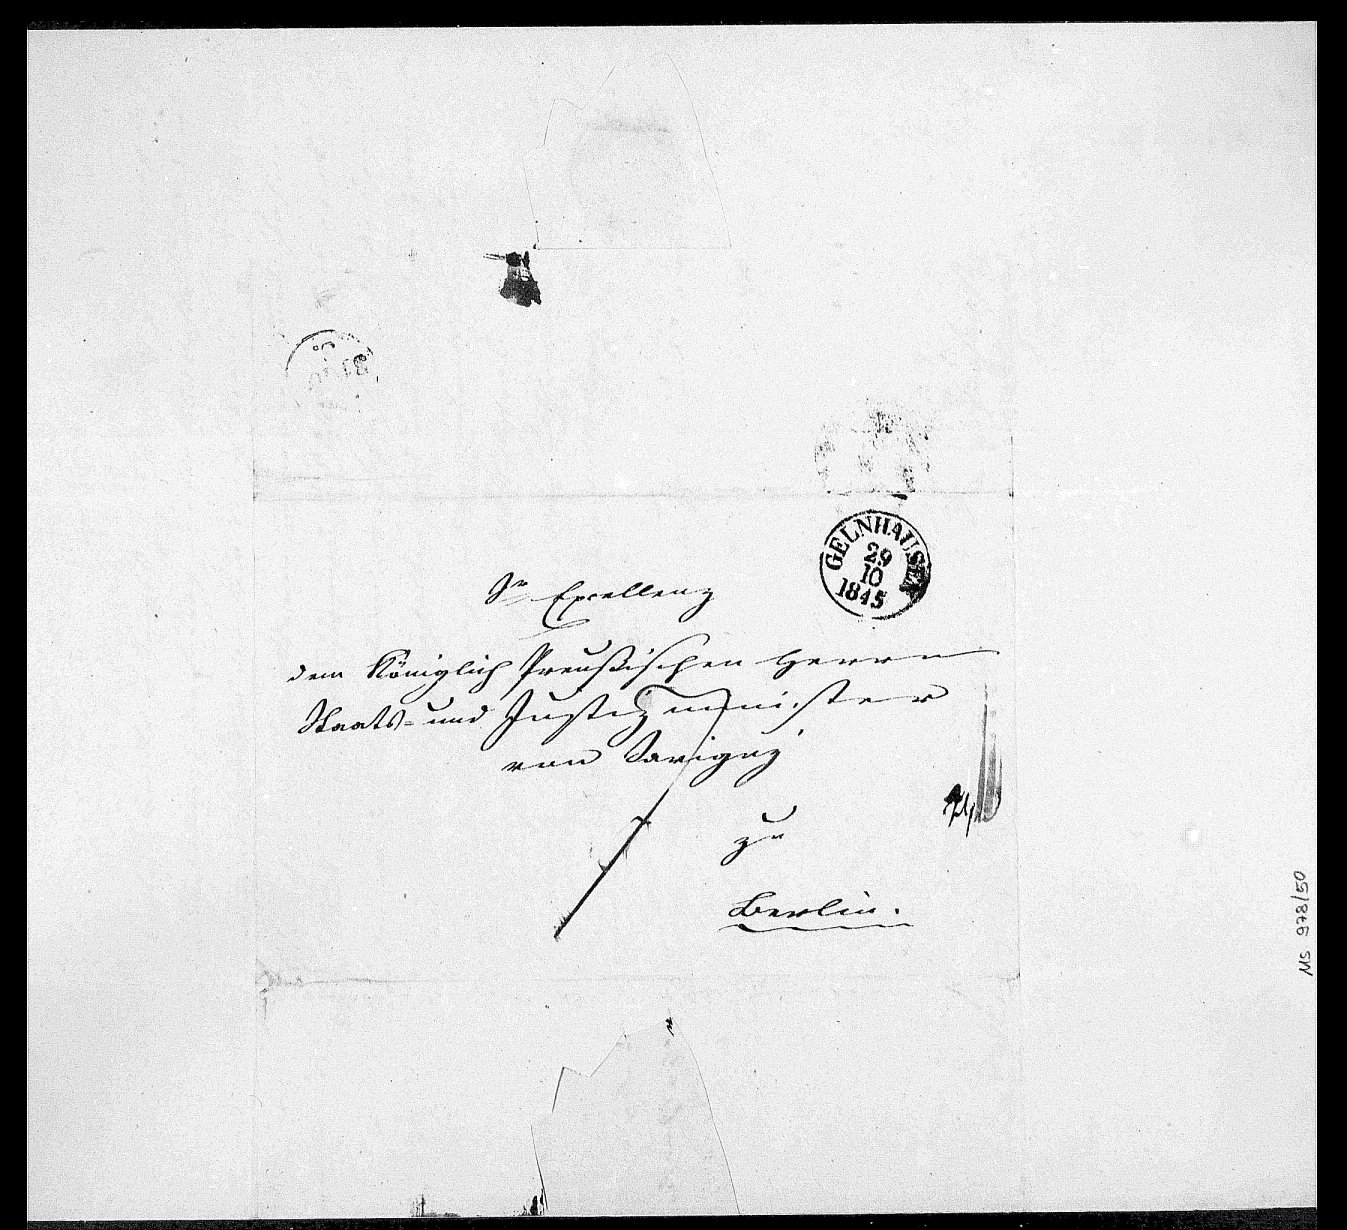 GELNHAUSEN
29
10
1845
Sr Excellenz
dem Königlich Preußischen Herrn
Staats- und Justizminister
von Savigny
zu
Berlin.
MS 978/50